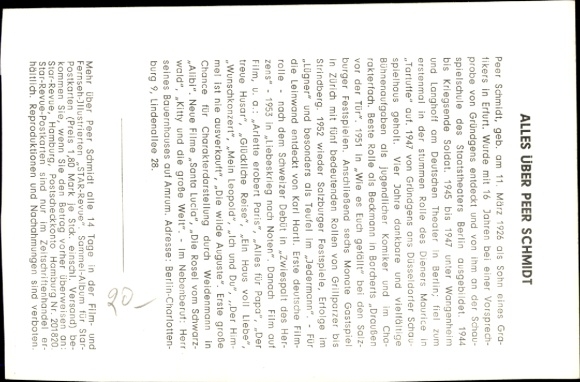 ALLES ÜBER PEER SCHMIDT
Peer Schmidt, geb. am 11. März 1926 als Sohn eines Gra-
fikers in Erfurt. Wurde mit 16 Jahren bei einer Vorsprech-
probe von Gründgens entdeckt und von ihm an der Schau-
spielschule des Staatstheaters Berlin ausgebildet. 1944
bis Kriegsende Soldat. 1945 bis 1947 unter Wangenheim
und Langhoff am Deutschen Theater in Berlin; fiel zum
erstenmal in der stummen Rolle des Dieners Maurice in
„Tartuffe" auf. 1947 von Gründgens ans Düsseldorfer Schau-
spielhaus geholt. Vier Jahre dankbare und vielfältige
Bühnenaufgaben als jugendlicher Komiker und im Cha-
rakterfach. Beste Rolle als Beckmann in Borcherts „Draußen
vor der Tür". 1951 in „Wie es Euch gefällt" bei den Salz-
burger Festspielen. Anschließend sechs Monate Gastspiel
in Zürich mit fünf bedeutenden Rollen von Grillparzer bis
Strindberg. 1952 wieder Salzburger Festspiele, Erfolge im
„Lügner" und besonders als Teufel im „Jedermann". - Für
die Leinwand entdeckt von Karl Hartl. Erste deutsche Film-
rolle - nach dem Schweizer Debüt in „Zwiespalt des Her-
zens" - 1953 in „Liebeskrieg nach Noten". Danach Film auf
Film, u. a.: „Arlette erobert Paris", „Alles für Papa", „Der
treue Husar", „Glückliche Reise", „Ein Haus voll Liebe",
„Wunschkonzert", „Mein Leopold", „Ich und Du", „Der Him-
mel ist nie ausverkauft", „Die wilde Auguste". Erste große
Chance für Charakterdarstellung durch Weidenmann in
„Alibi". Neue Filme „Santa Lucia", „Die Rosel vom Schwarz-
wald", „Kitty und die große Welt". - Im Nebenberuf Herr
seines Bauernhauses auf Amrum. Adresse: Berlin-Charlotten-
burg 9, Lindenallee 28.
90,-
Mehr über Peer Schmidt alle 14 Tage in der Film- und
Fernseh-Illustrierten „STAR-Revue". Sammel-Album für Star-
Postkarten (Preis 1,80 Mark je Stck. einschl. Versand) be-
kommen Sie, wenn Sie den Betrag vorher überweisen an:
Star-Revue Hamburg, Postscheckkonto Hamburg Nr. 201920
Star-Revue-Postkarten sind nur im Zeitschriftenhandel er-
hältlich. Reproduktionen und Nachahmungen sind verboten.